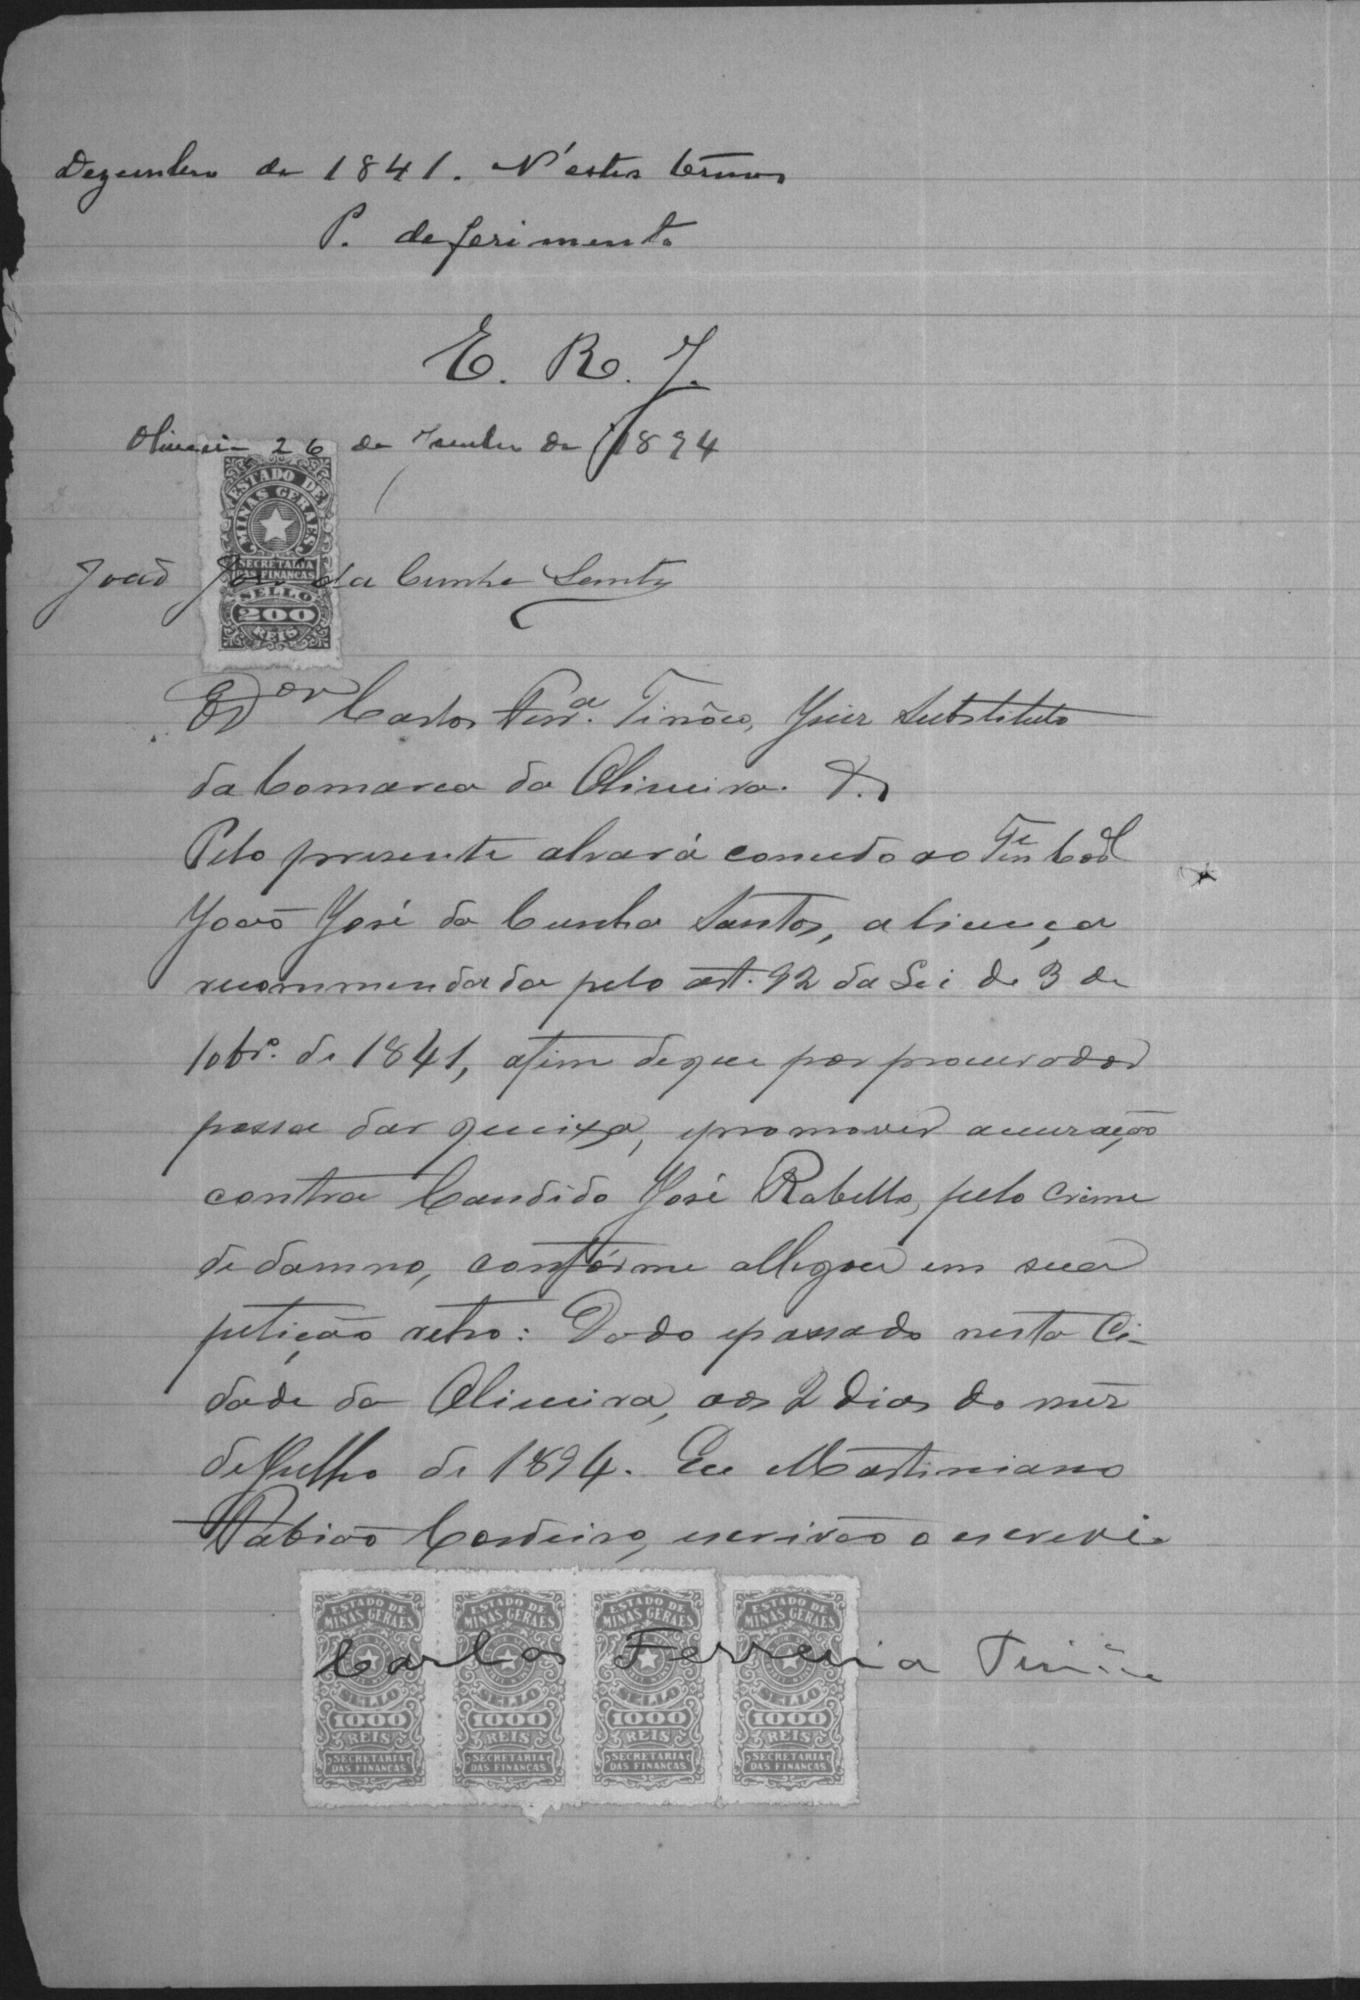 Dezembro de 1841. N'estes termos
P. deferimento
E. R. J.
Oliveira 26 de Junho de 1894
João José da Cunha Santos
ESTADO DE
MINAS GERAES
SECRETARIA
DAS FINANÇAS
SELLO
200
REIS
Dor Carlos Ferra. Tinôco, Juiz Substituto
da Comarca da Oliveira. &.
Pelo presente alvará concedo ao Tene Corel
João José da Cunha Santos, a licença
recommendada pelo art. 92 da Lei de 3 de
10bro. de 1841, afim de que por procurador
possa dar queixa, e promover accusação
contra Candido José Rabello, pelo crime
de damno, confórme allegou em sua
petição retro: Dado e passado nesta Ci-
dade da Oliveira, aos 2 dias do mez
de Julho de 1894. Eu Martiniano
Fabião Cordeiro, escrivão o escrevi.
ESTADO DE MINAS GERAES SELLO 1000 REIS SECRETARIA DAS FINANÇAS
ESTADO DE MINAS GERAES SELLO 1000 REIS SECRETARIA DAS FINANÇAS
ESTADO DE MINAS GERAES SELLO 1000 REIS SECRETARIA DAS FINANÇAS
ESTADO DE MINAS GERAES SELLO 1000 REIS SECRETARIA DAS FINANÇAS
Carlos Ferreira Tinôco